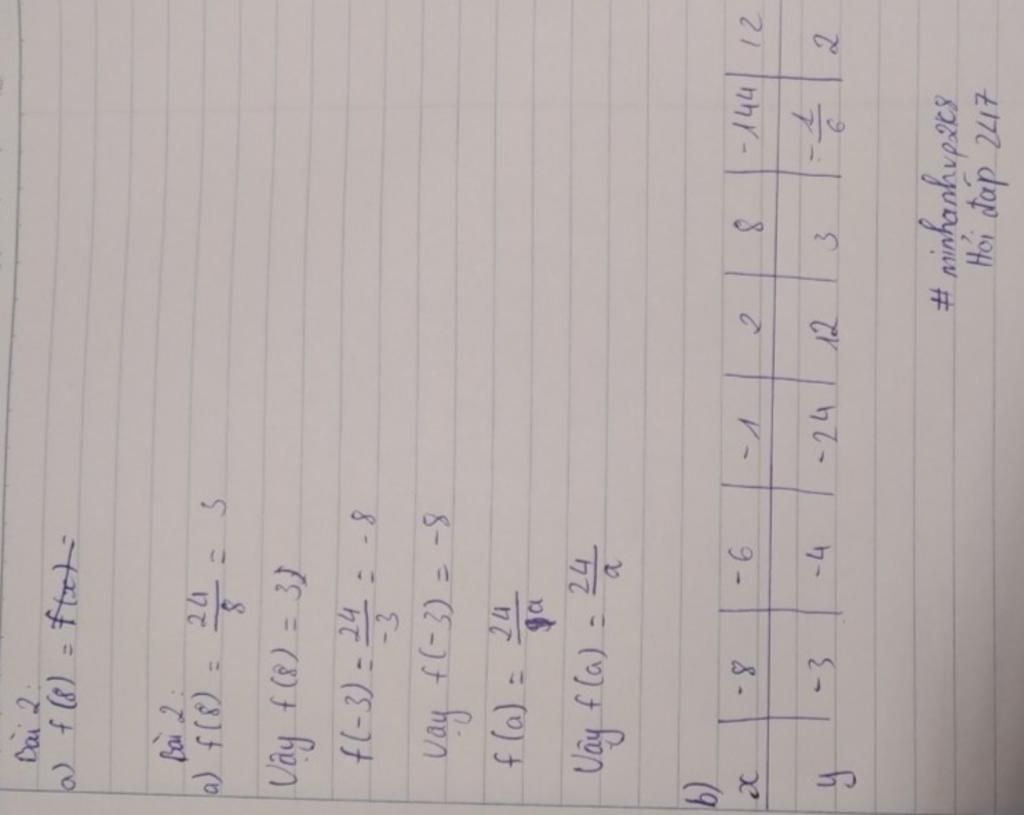 Bài 2:
a) f(8) = f(x) =
Bài 2:
a) f(8) = 24/8 = 3
Vậy f(8) = 3
f(-3) = 24/-3 = -8
Vay f(-3) = -8
f(a) = 24/a
Vây f(a) = 24/a
b)
x | -8 | -6 | -1 | 2 | 8 | -144 | 12
y | -3 | -4 | -24 | 12 | 3 | -1/6 | 2
# minhanhvp2k8
Hỏi đáp 247